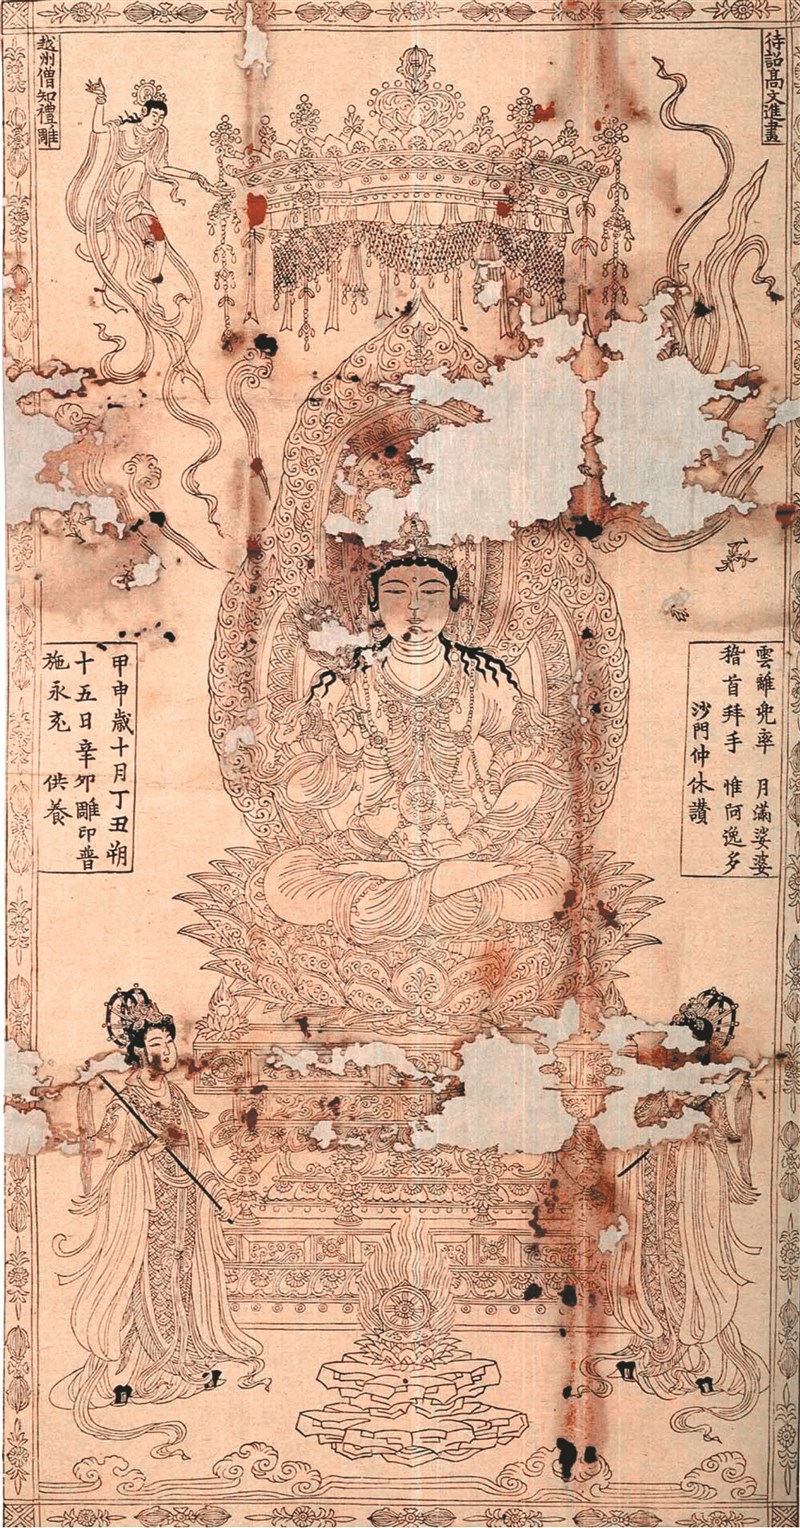 待詔高文進畫
越州僧知禮雕
雲離兜率 月滿娑婆
稽首拜手 惟阿逸多
沙門仲休讚
甲申歲十月丁丑朔
十五日辛卯雕印普
施永充 供養